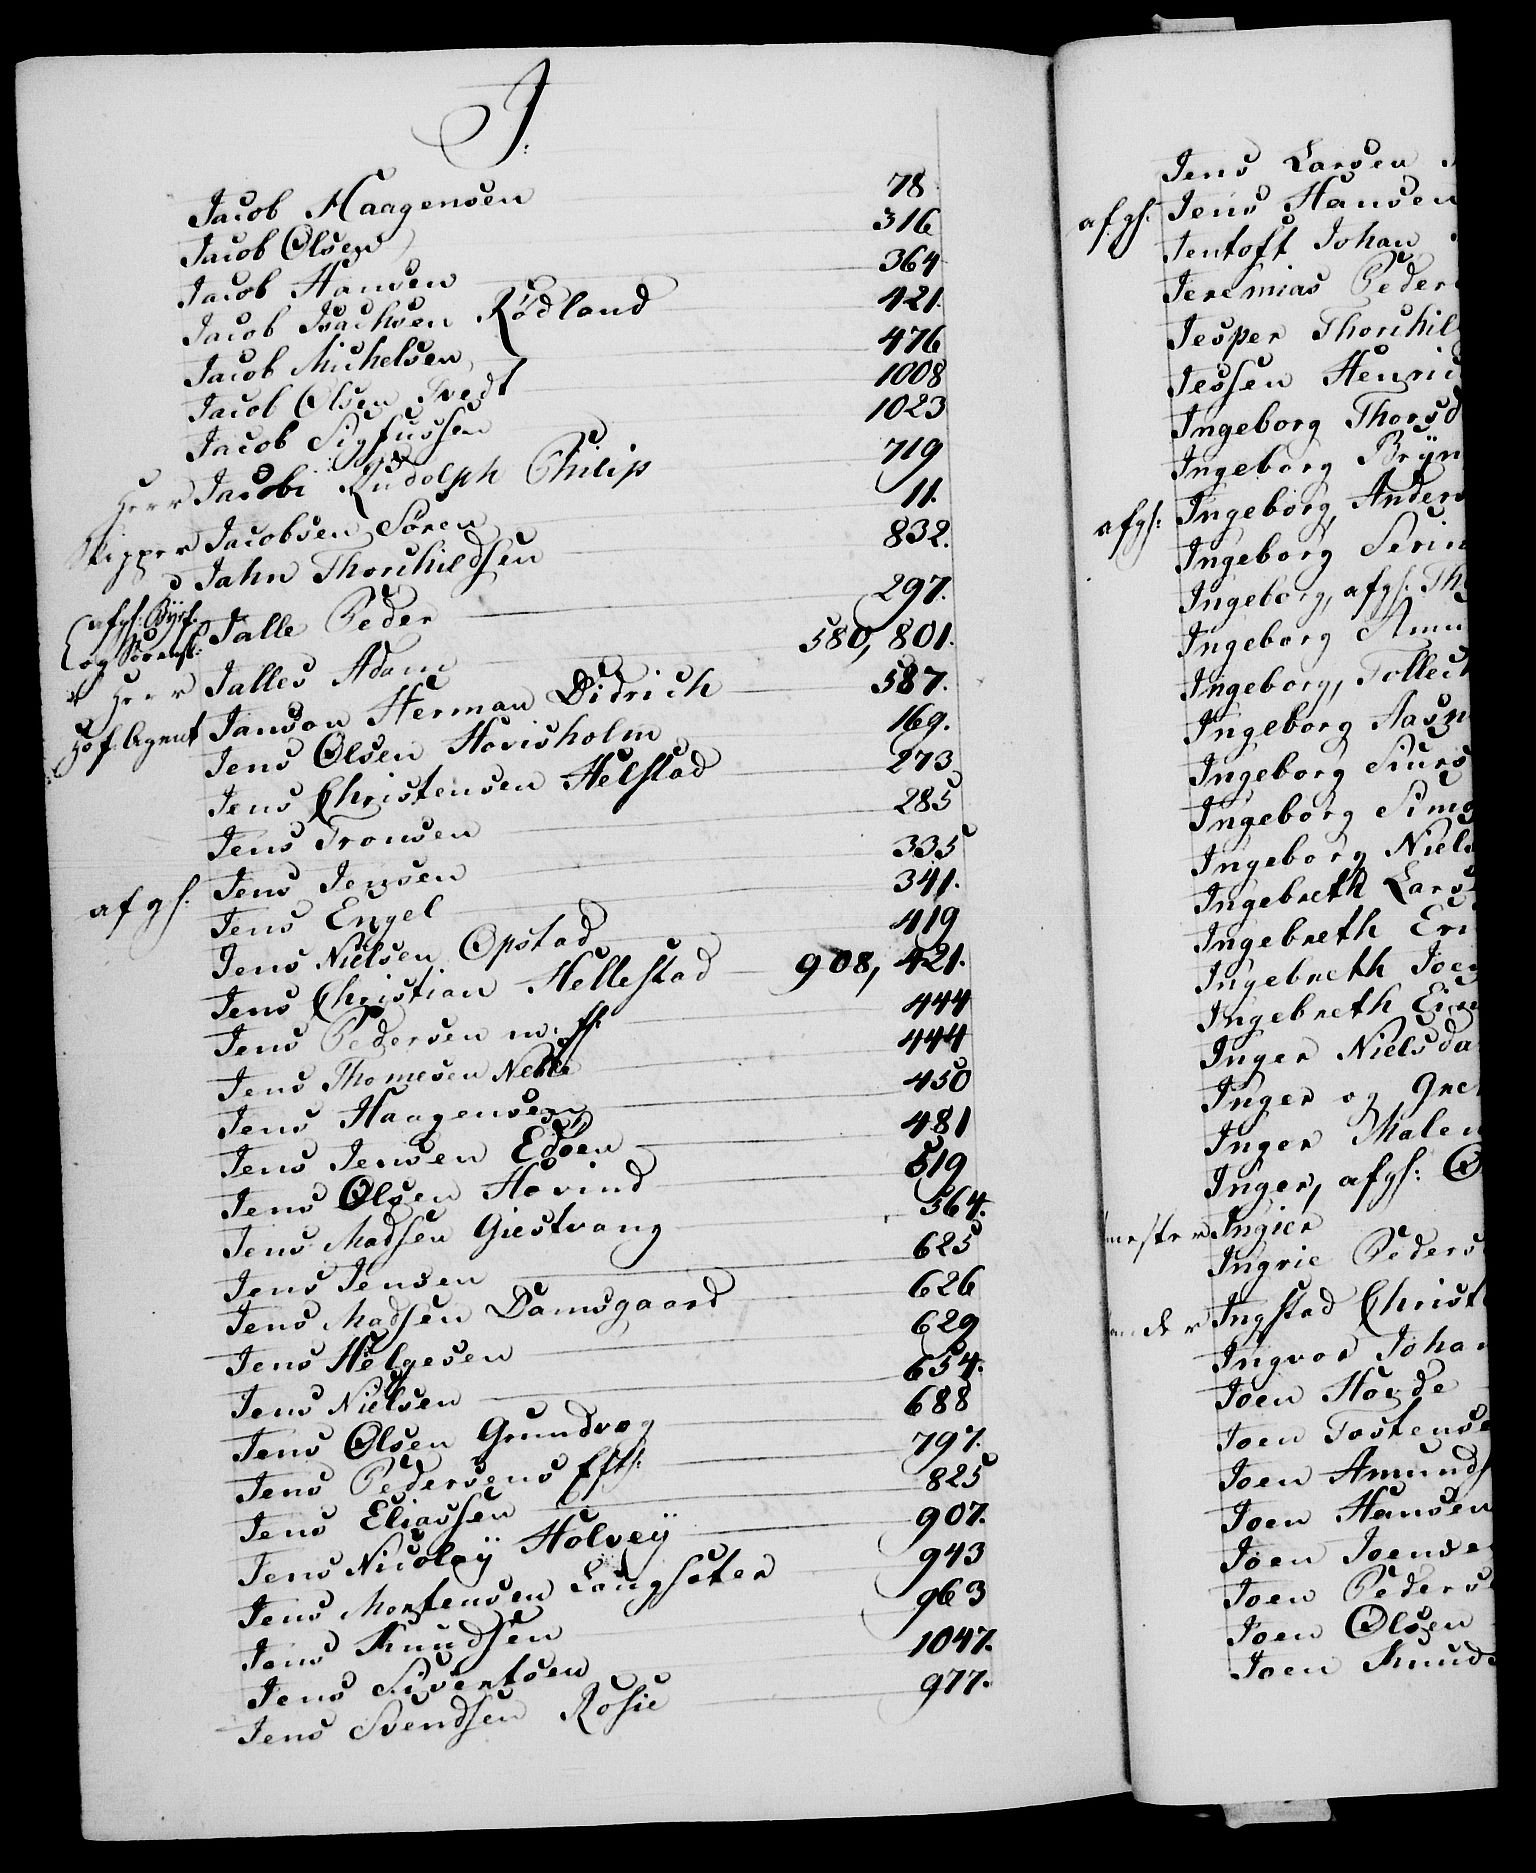 J:
Jacob Haagensen 78
Jacob Olsen 316
Jacob Hansen 364
Jacob Isachsen Rödland 421.
Jacob Michelsen 476
Jacob Olsen Tvedt 1008
Jacob Sigfussen 1023
Herr Jacobi Rudolph Philip 719
Skipper Jacobsen Sören 11.
Jahn Thorchildsen 832.
afgl. Byef. og Sorensk: Jalle Peder 297.
Herr Jalles Adam 580, 801.
Hof Agent Janson Herman Didrich 587.
Jens Olsen Hovisholm 169.
Jens Christensen Helstad 273
Jens Tronsen 285
afgl. Jens Jensen 335
Jens Engel 341.
Jens Nielsen Opstad 419
Jens Christian Hellestad 908, 421.
Jens Pedersen m: fl: 444
Jens Thomesen Nebbe 444
Jens Haagensen 450
Jens Jensen Edöen 481
Jens Olsen Hovind 519
Jens Madsen Giestvang 564.
Jens Jensen 625
Jens Madsen Damsgaard 626
Jens Helgesen 629
Jens Nielsen 654.
Jens Olsen Grundvog 688
Jens Pedersens Eft: 797.
Jens Eliassen 825
Jens Nicolaÿ Holveÿ 907.
Jens Mortensen Langseter 943
Jens Knudsen 963
Jens Sivertsen 1047.
Jens Svendsen Rosie 977.
Jens Larsen
afgl. Jens Hansen
Jentoft Johan
Jeremias Peder
Jesper Thorchil
Jessen Henric
Ingeborg Thorsd
Ingeborg Brÿn
afgl: Ingeborg, Anders
Ingeborg Serin
Ingeborg, afgl: Th
Ingeborg Amu
Ingeborg, Tollec
Ingeborg Aasm
Ingeborg Siurs
Ingeborg Simo
Ingeborg Niels
Ingebreth Lars
Ingebreth Eri
Ingebreth Joen
Ingebreth Ein
Inger Nielsda
Inger og Gre
Inger Malen
Inger, afgl: O
mester Ingier
Ingrie Peders
ander Ingstad Christ
Ingvor Johan
Joen Hovde
Joen Tostense
Joen Amunds
Joen Hansen
Joen Joense
Joen Peders
Joen Olsen
Joen Knuds